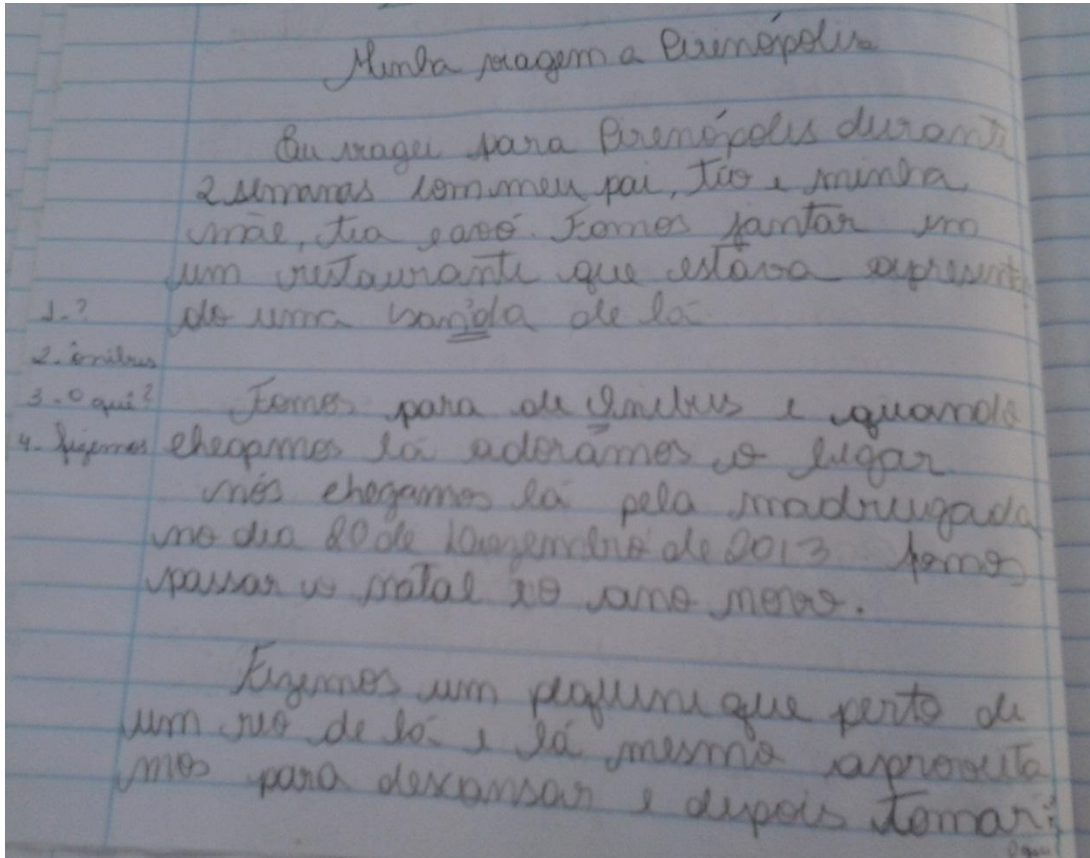 Minha viagem a Pirinópolis
Eu viagei para Pirenópolis durante
2 semanas com meu pai, tio e minha
mãe, tia e avó. Fomos jantar em
um restaurante que estava apresent
1.? do uma banda de lá
2. ônibus
3. O quê? Fomos para de Onibus e quando
4. fizemos chegamos lá adorámos o lugar
nós chegamos lá pela madrugada
no dia 20 de dezembro de 2013 fomos
passar o natal e o ano novo.
Fizemos um pequeni que perto de
um rio de lá e lá mesmo aproveita
mos para descansar e depois tomar